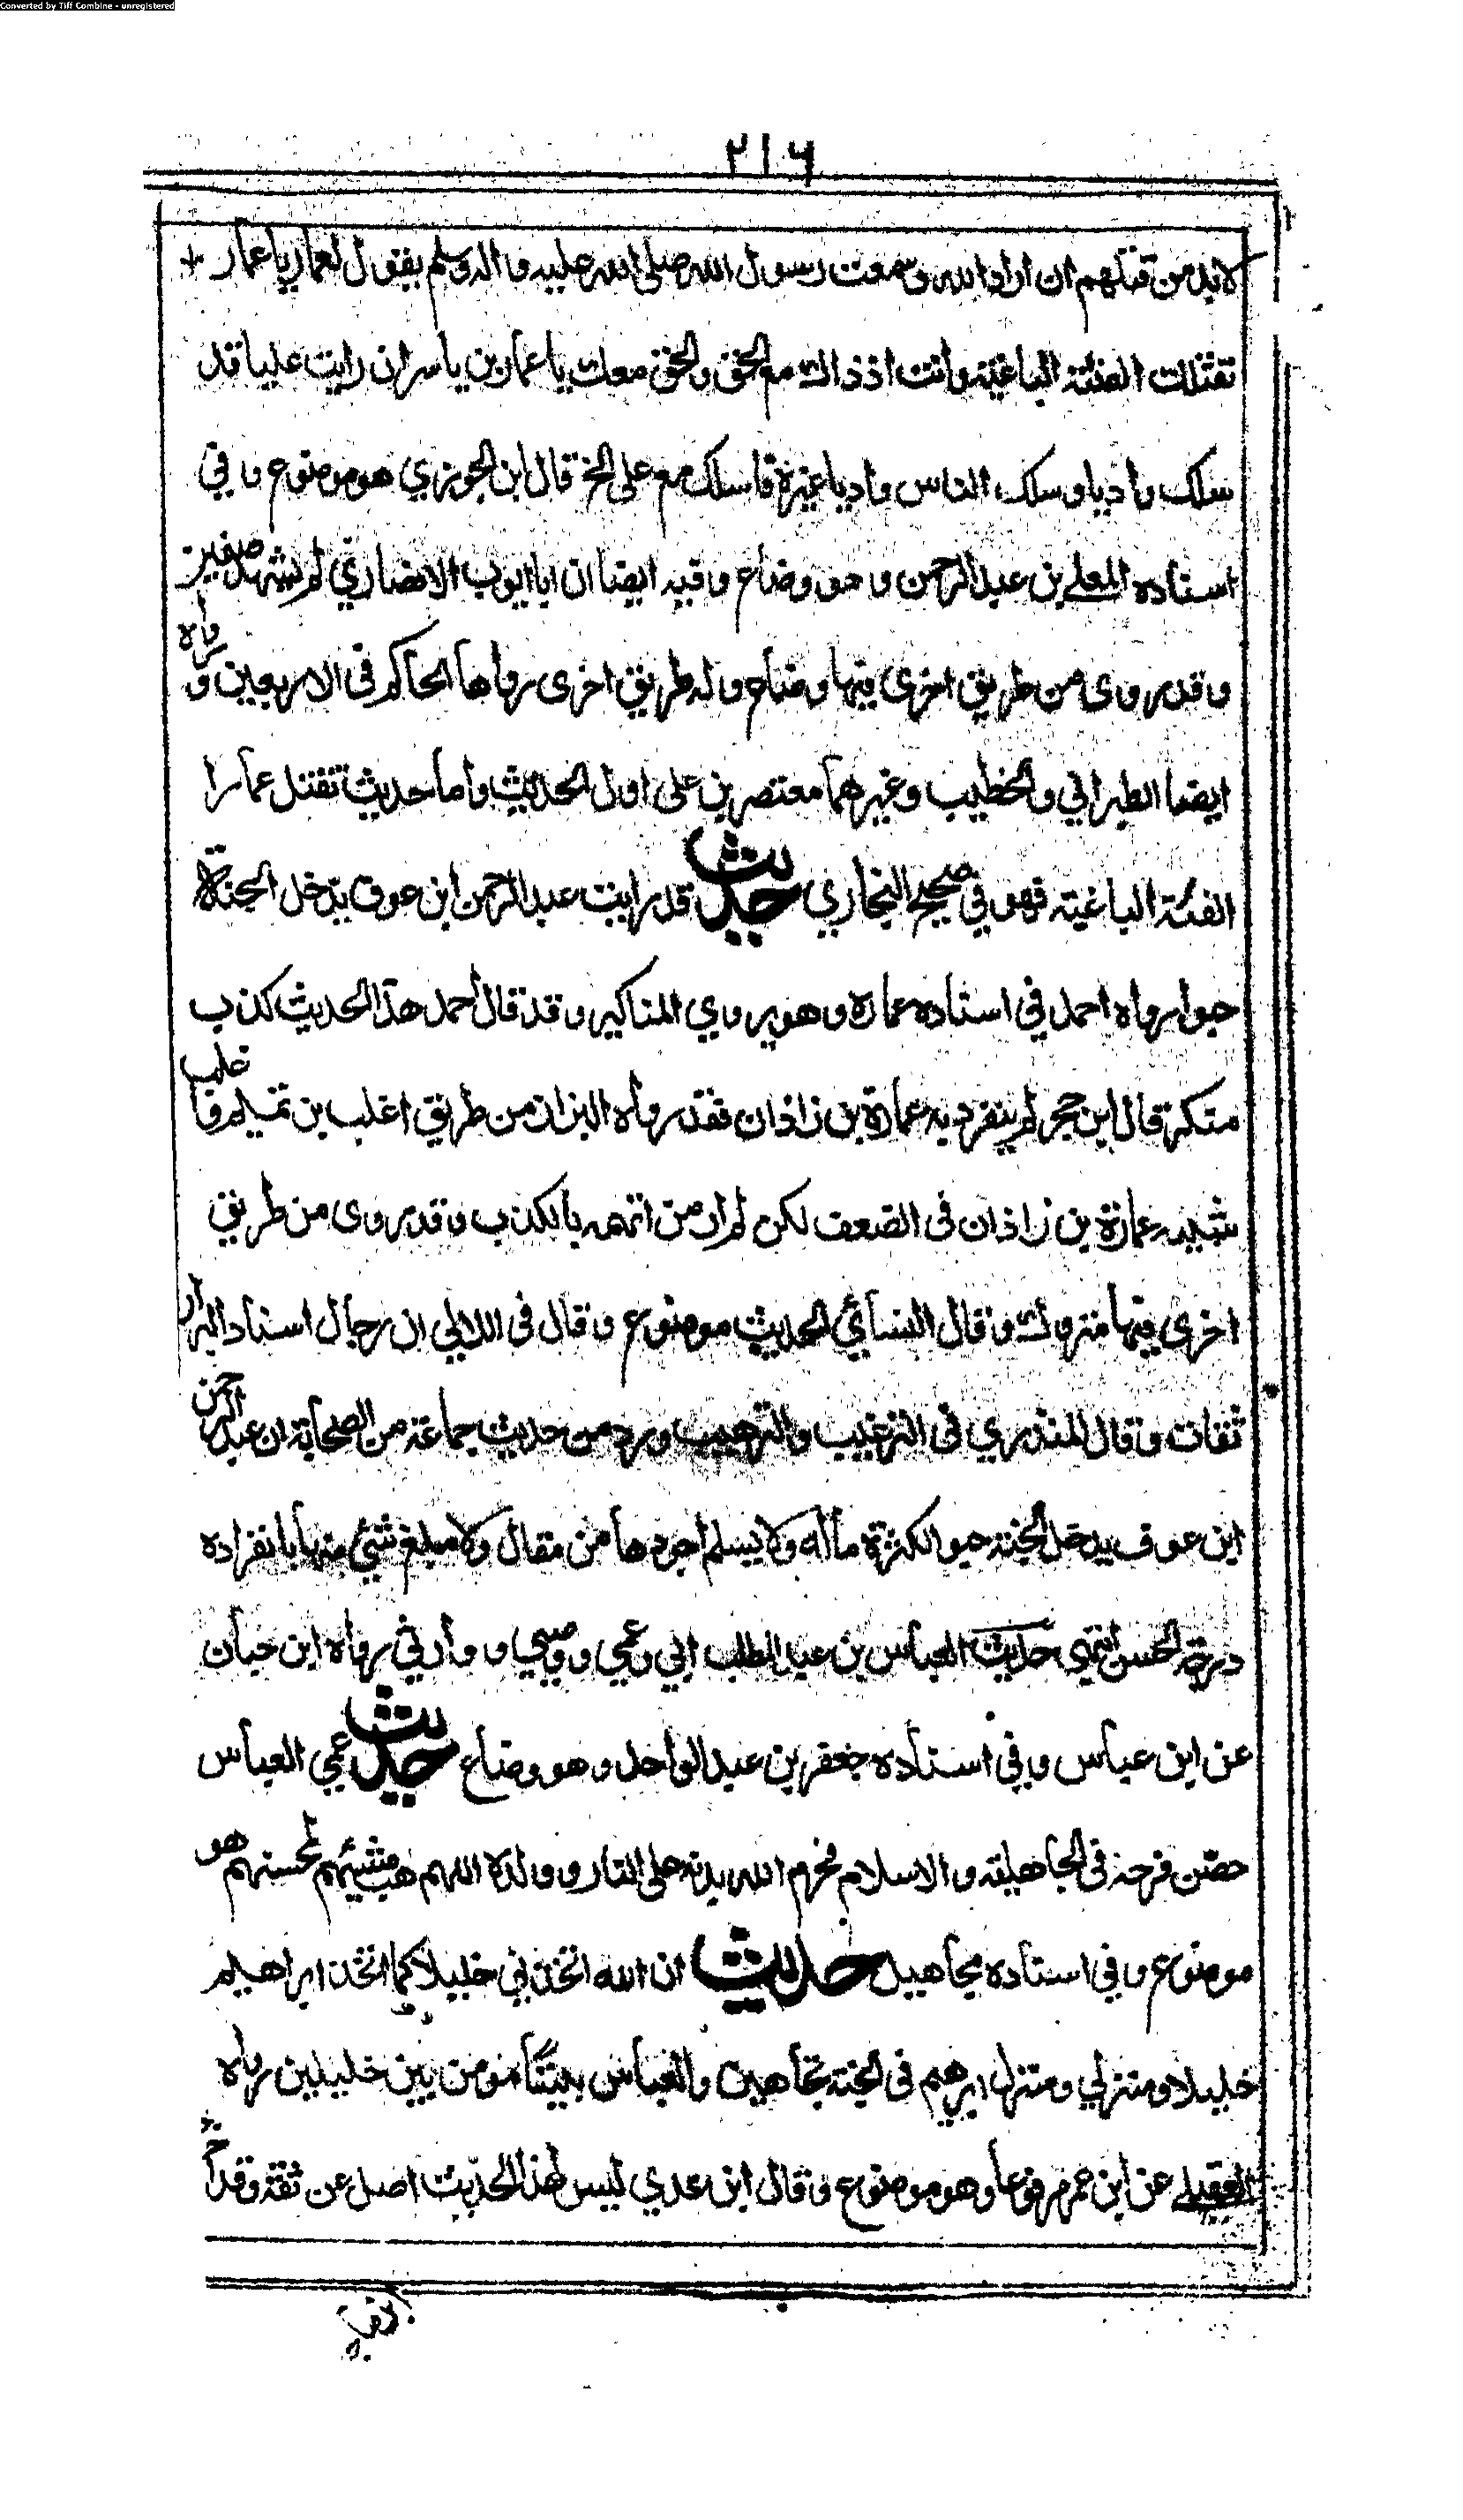 Converted by Tiff Combine - unregistered
٢١٦
لابد من قتلهم ان اراد الله وسمعت رسول الله صلى الله عليه واله وسلم يقول لعمار يا عمار
تقتلك الفئة الباغية وانت اذ ذاك مع الحق والحق معك يا عمار بن ياسر ان رايت عليا قد
سلك واديا وسلك الناس واديا غيره فاسلك مع على الخ قال ابن الجوزي هو موضوع وفي
اسناده المعلى بن عبد الرحمن وهو وضاع وفيه ايضا ان ابا ايوب الانصاري لم يشهد صفين
وقد روى من طريق اخرى فيها وضاع وله طريق اخرى رواها الحاكم في الاربعين ورواه
ايضا الطبراني والخطيب وغيرهما مقتصرين على اول الحديث واما حديث تقتل عمارا
الفئة الباغية فهو في صحيح البخاري حديث قد رايت عبد الرحمن ابن عوف يدخل الجنة
حبوا رواه احمد في اسناده عمارة وهو يروي المناكير وقد قال احمد هذا الحديث كذب
منكر قال ابن حجر لم يتفرد به عمارة بن زاذان فقد رواه البزار من طريق اغلب بن تميم واغلب
شبيه عمارة بن زاذان في الضعف لكن لم ار من اتهمه بالكذب وقد روى من طريق
اخرى فيها متروك وقال النسائي الحديث موضوع وقال في اللالي ان رجال اسناد البزار
ثقات وقال المنذري في الترغيب والترهيب ورد من حديث جماعة من الصحابة ان عبد الرحمن
ابن عوف يدخل الجنة حبوا لكثرة ماله ولا يسلم اجودها من مقال ولا مبلغ شئ منها بانفراده
درجة الحسن انتهى حديث العباس بن عبد المطلب ابي وعمي ووصيي ووارثي رواه ابن حبان
عن ابن عباس وفي اسناده جعفر بن عبد الواحد وهو وضاع حديث عمي العباس
حصن فرجه في الجاهلية والاسلام فحرم الله بدنه على النار وولده اللهم هب مسيئهم لمحسنهم هو
موضوع وفي اسناده مجاهيل حديث ان الله اتخذني خليلا كما اتخذ ابراهيم
خليلا ومنزلي ومنزل ابرهيم في الجنة تجاهين والعباس بيننا مومن بين خليلين رواه
العقيلي عن ابن عمر مرفوعا وهو موضوع وقال ابن عدي ليس لهذا الحديث اصل عن ثقة وقد